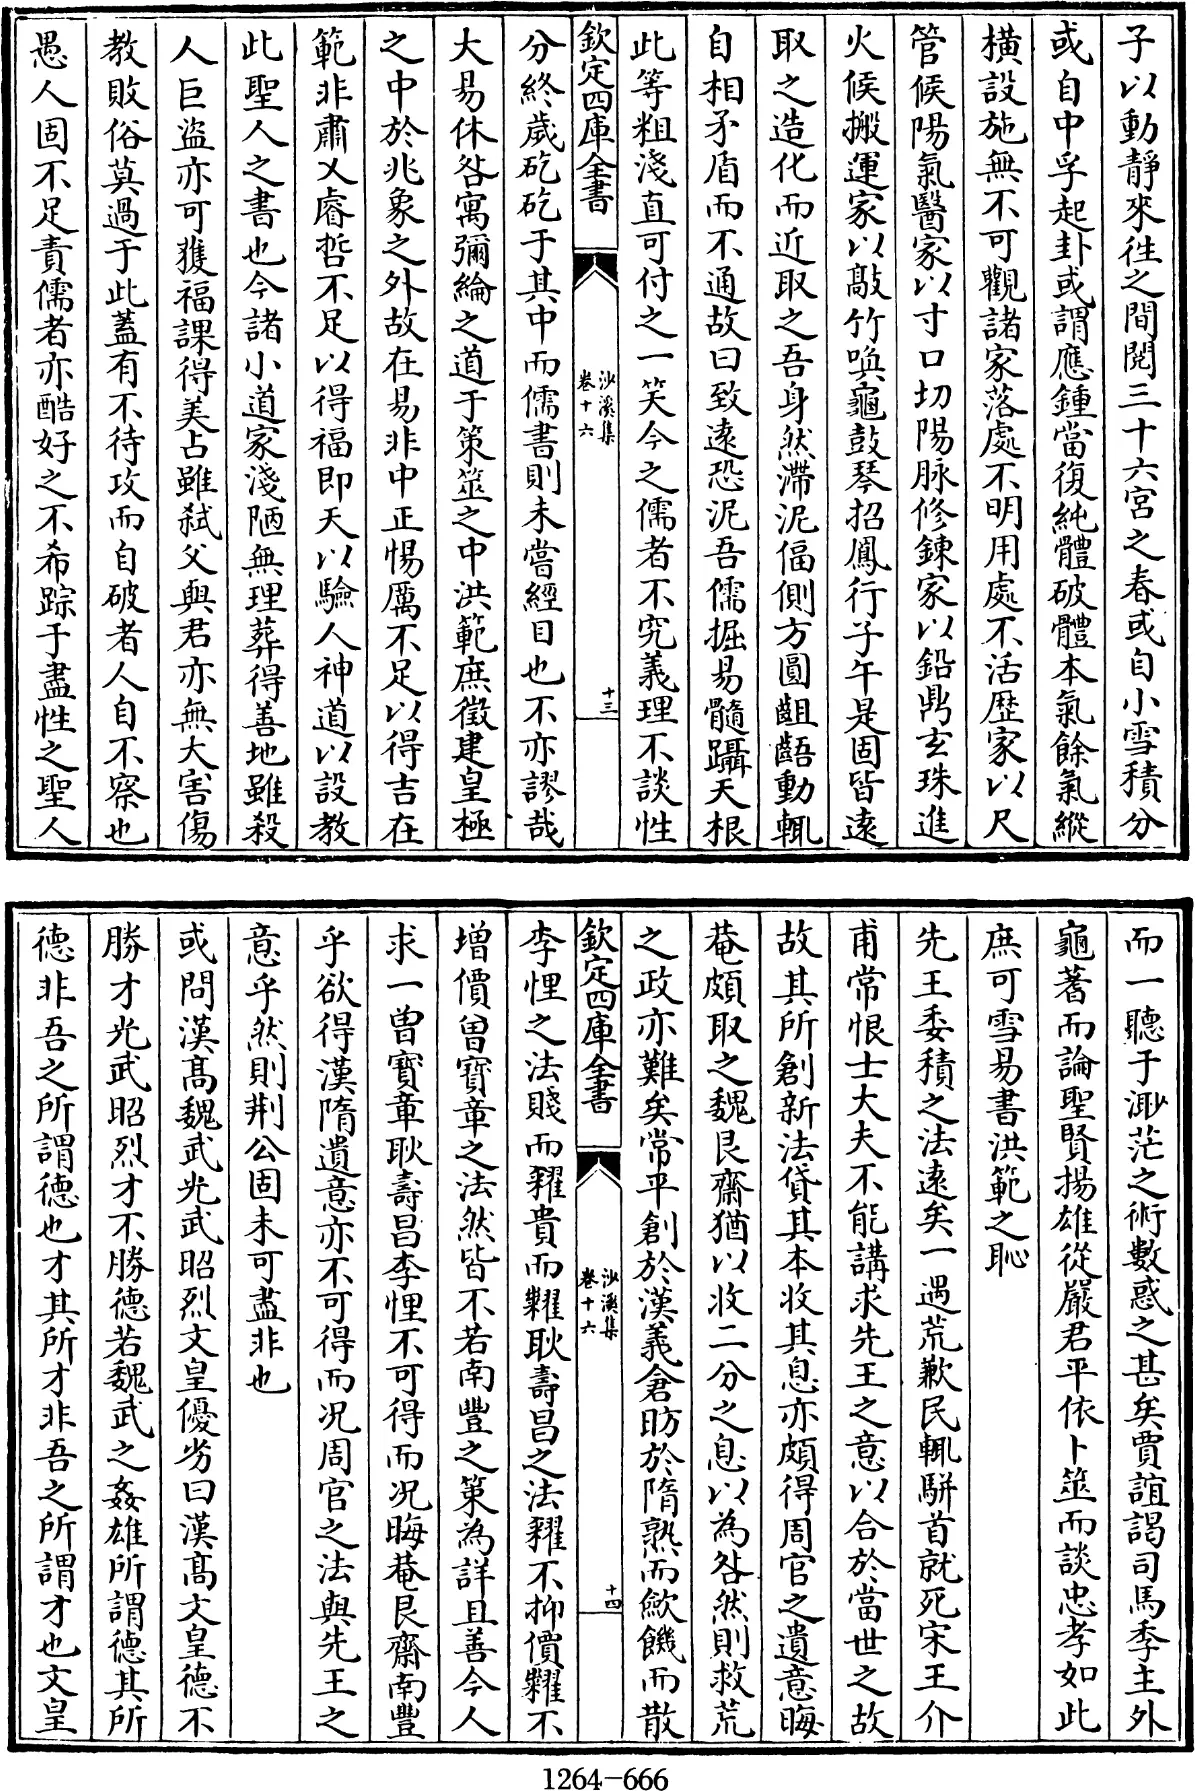 子以動靜來徃之間閱三十六宮之春或自小雪積分
或自中孚起卦或謂應鍾當復純體破體本氣餘氣縱
橫設施無不可觀諸家落處不明用處不活歴家以尺
管候陽氣醫家以寸口切陽脉修鍊家以鉛鼎玄珠進
火候搬運家以敲竹喚龜鼓琴招鳳行子午是固皆遠
取之造化而近取之吾身然滯泥偪側方圓齟齬動輒
自相矛盾而不通故曰致遠恐泥吾儒掘易髓躡天根
此等粗淺直可付之一笑今之儒者不究義理不談性
欽定四庫全書
沙溪集
卷十六
十三
分終歲矻矻于其中而儒書則未嘗經目也不亦謬哉
大易休咎寓彌綸之道于策筮之中洪範庶徵建皇極
之中於兆象之外故在易非中正惕厲不足以得吉在
範非肅乂睿哲不足以得福即天以驗人神道以設教
此聖人之書也今諸小道家淺陋無理葬得善地雖殺
人巨盜亦可獲福課得美占雖弒父與君亦無大害傷
教敗俗莫過于此蓋有不待攻而自破者人自不察也
愚人固不足責儒者亦酷好之不希踪于盡性之聖人
而一聽于渺茫之術數惑之甚矣賈誼謁司馬季主外
龜蓍而論聖賢揚雄從嚴君平依卜筮而談忠孝如此
庶可雪易書洪範之恥
先王委積之法遠矣一遇荒歉民輒駢首就死宋王介
甫常恨士大夫不能講求先王之意以合於當世之故
故其所創新法貸其本收其息亦頗得周官之遺意晦
菴頗取之魏艮齋猶以收二分之息以為咎然則救荒
之政亦難矣常平創於漢義倉昉於隋熟而歛饑而散
欽定四庫全書
沙溪集
卷十六
十四
李悝之法賤而糴貴而糶耿壽昌之法糴不抑價糶不
增價曾寶章之法然皆不若南豐之策為詳且善今人
求一曾寶章耿壽昌李悝不可得而况晦菴艮齋南豐
乎欲得漢隋遺意亦不可得而况周官之法與先王之
意乎然則荆公固未可盡非也
或問漢髙魏武光武昭烈文皇優劣曰漢髙文皇德不
勝才光武昭烈才不勝德若魏武之姦雄所謂德其所
德非吾之所謂德也才其所才非吾之所謂才也文皇
1264-666